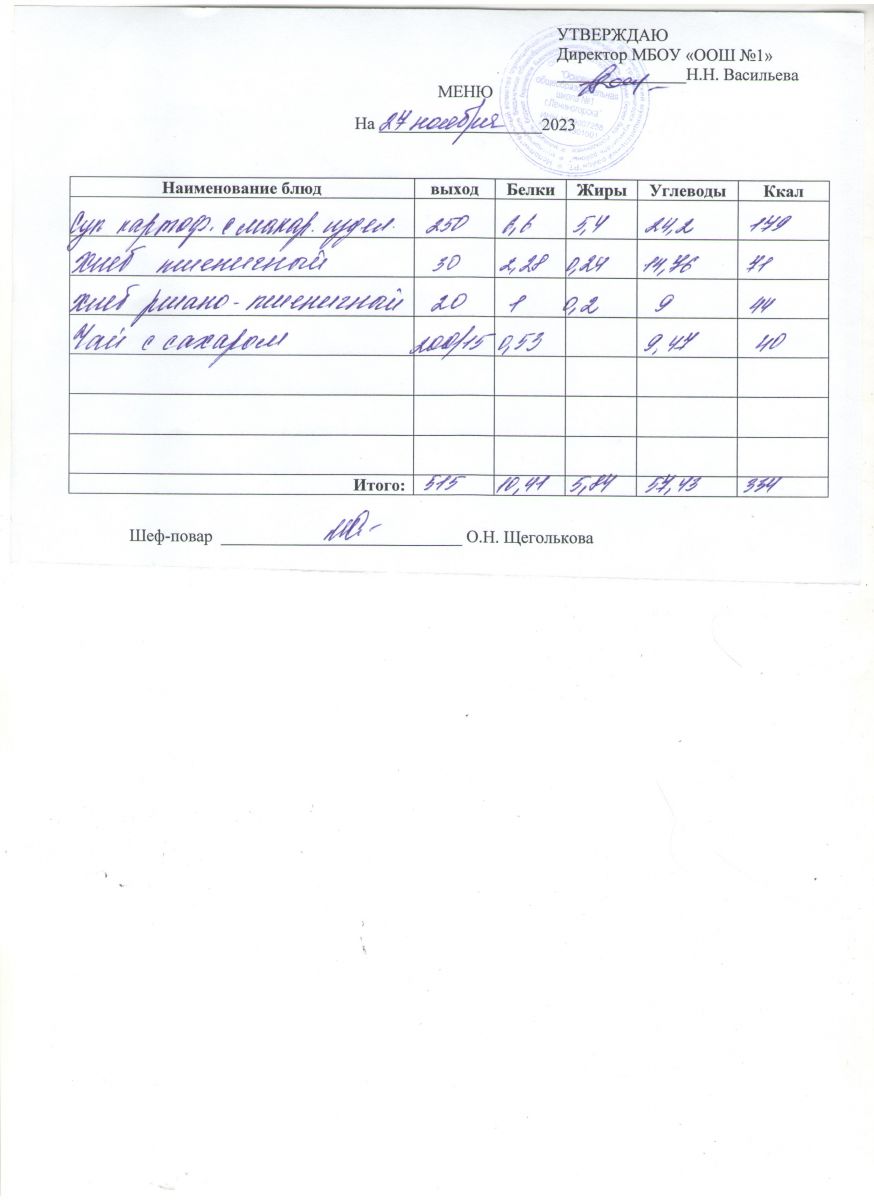 УТВЕРЖДАЮ
Директор МБОУ «ООШ №1»
Н.Н. Васильева
"Основная
общеобразовательная
школа №1
г.Лениногорска"
МЕНЮ
На 27 ноября 2023
Наименование блюд выход Белки Жиры Углеводы Ккал
Суп картоф. с макар. издел. 250 6,6 5,4 24,2 179
Хлеб пшеничный 30 2,28 0,24 14,76 71
Хлеб ржано-пшеничной 20 1 0,2 9 44
Чай с сахаром 200/15 0,53 9,47 40
Итого: 515 10,41 5,84 57,43 334
Шеф-повар О.Н. Щеголькова